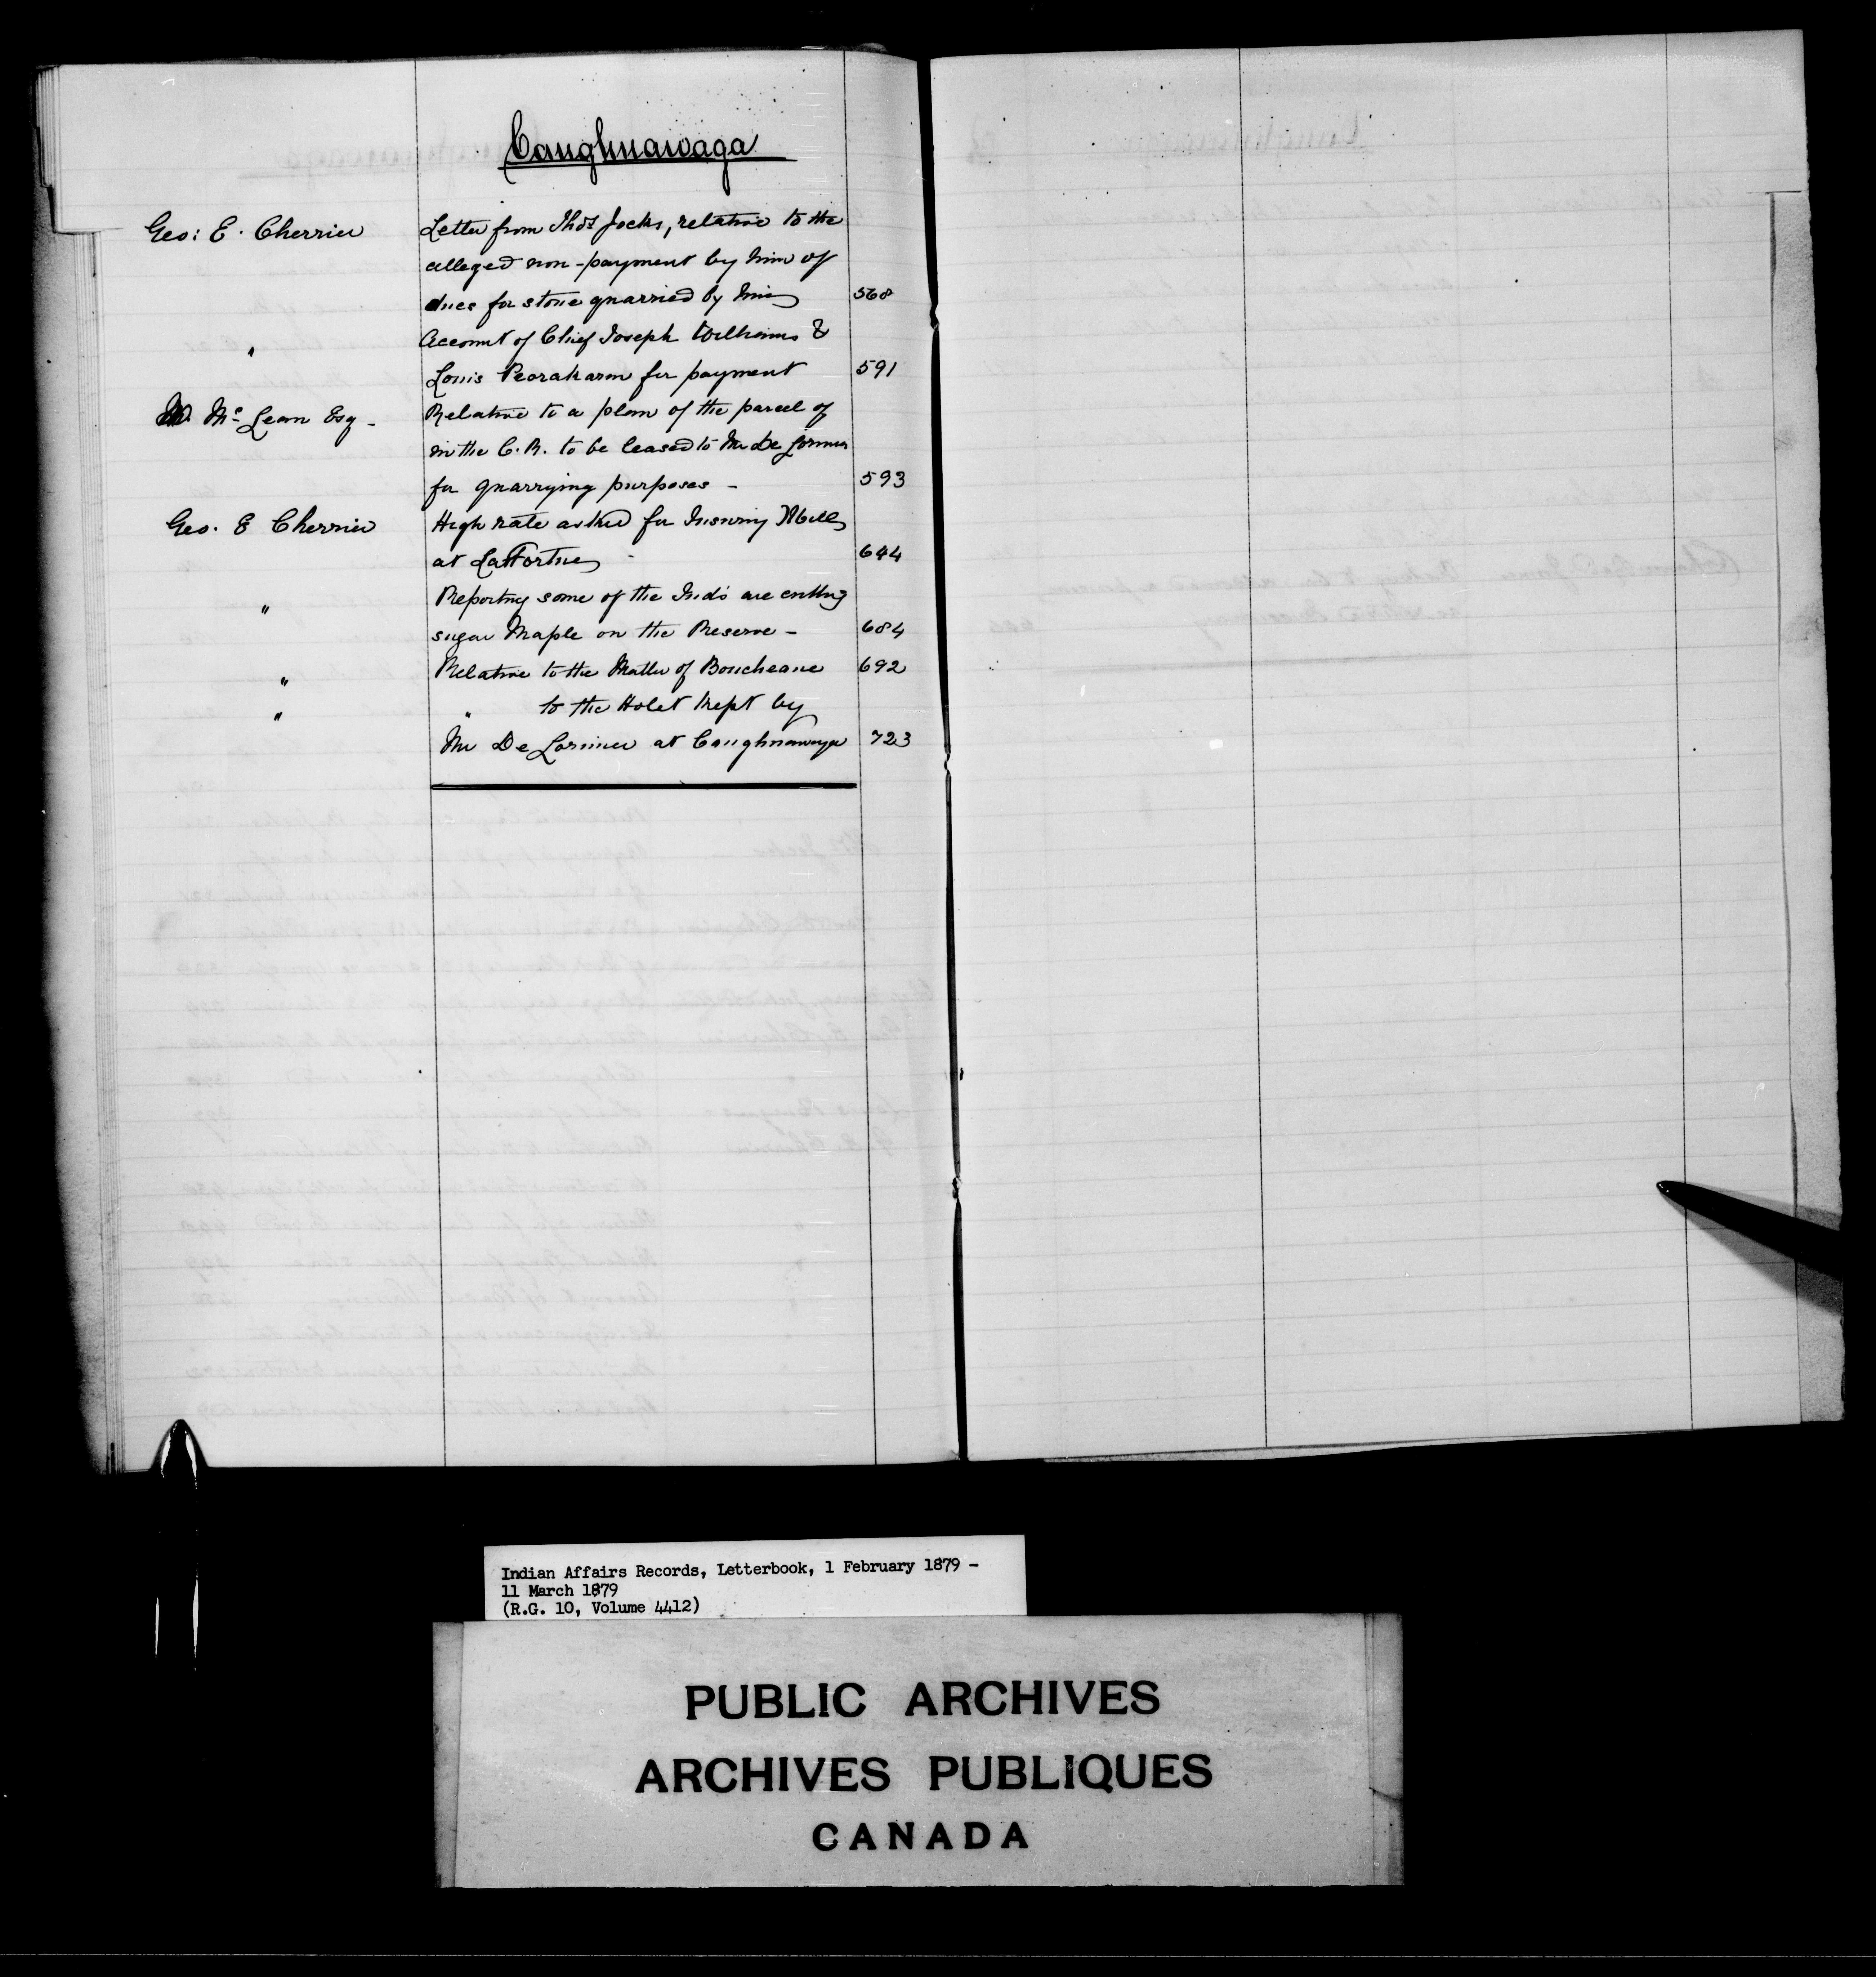 Caughnawaga
Geo: E. Cherrier Letter from Thos Jocks, relative to the
alleged non-payment by him of
dues for stone quarried by him 568
" Account of Chief Joseph Williams &
Louis for payment 591
W. Mc Lean Esq - Relative to a plan of the parcel of
in the C. R. to be leased to Mr De Lorimier
for quarrying purposes - 593
Geo. E Cherrier High rate asked for Insuring Mills
at LaFortune 644
" Reporting some of the Inds are cutting
sugar Maple on the Reserve - 684
" Relative to the Matter of 692
" " to the Hotel kept by
Mr De Lorimier at Caughnawaga 723
Indian Affairs Records, Letterbook, 1 February 1879 -
11 March 1879
(R.G. 10, Volume 4412)
PUBLIC ARCHIVES
ARCHIVES PUBLIQUES
CANADA